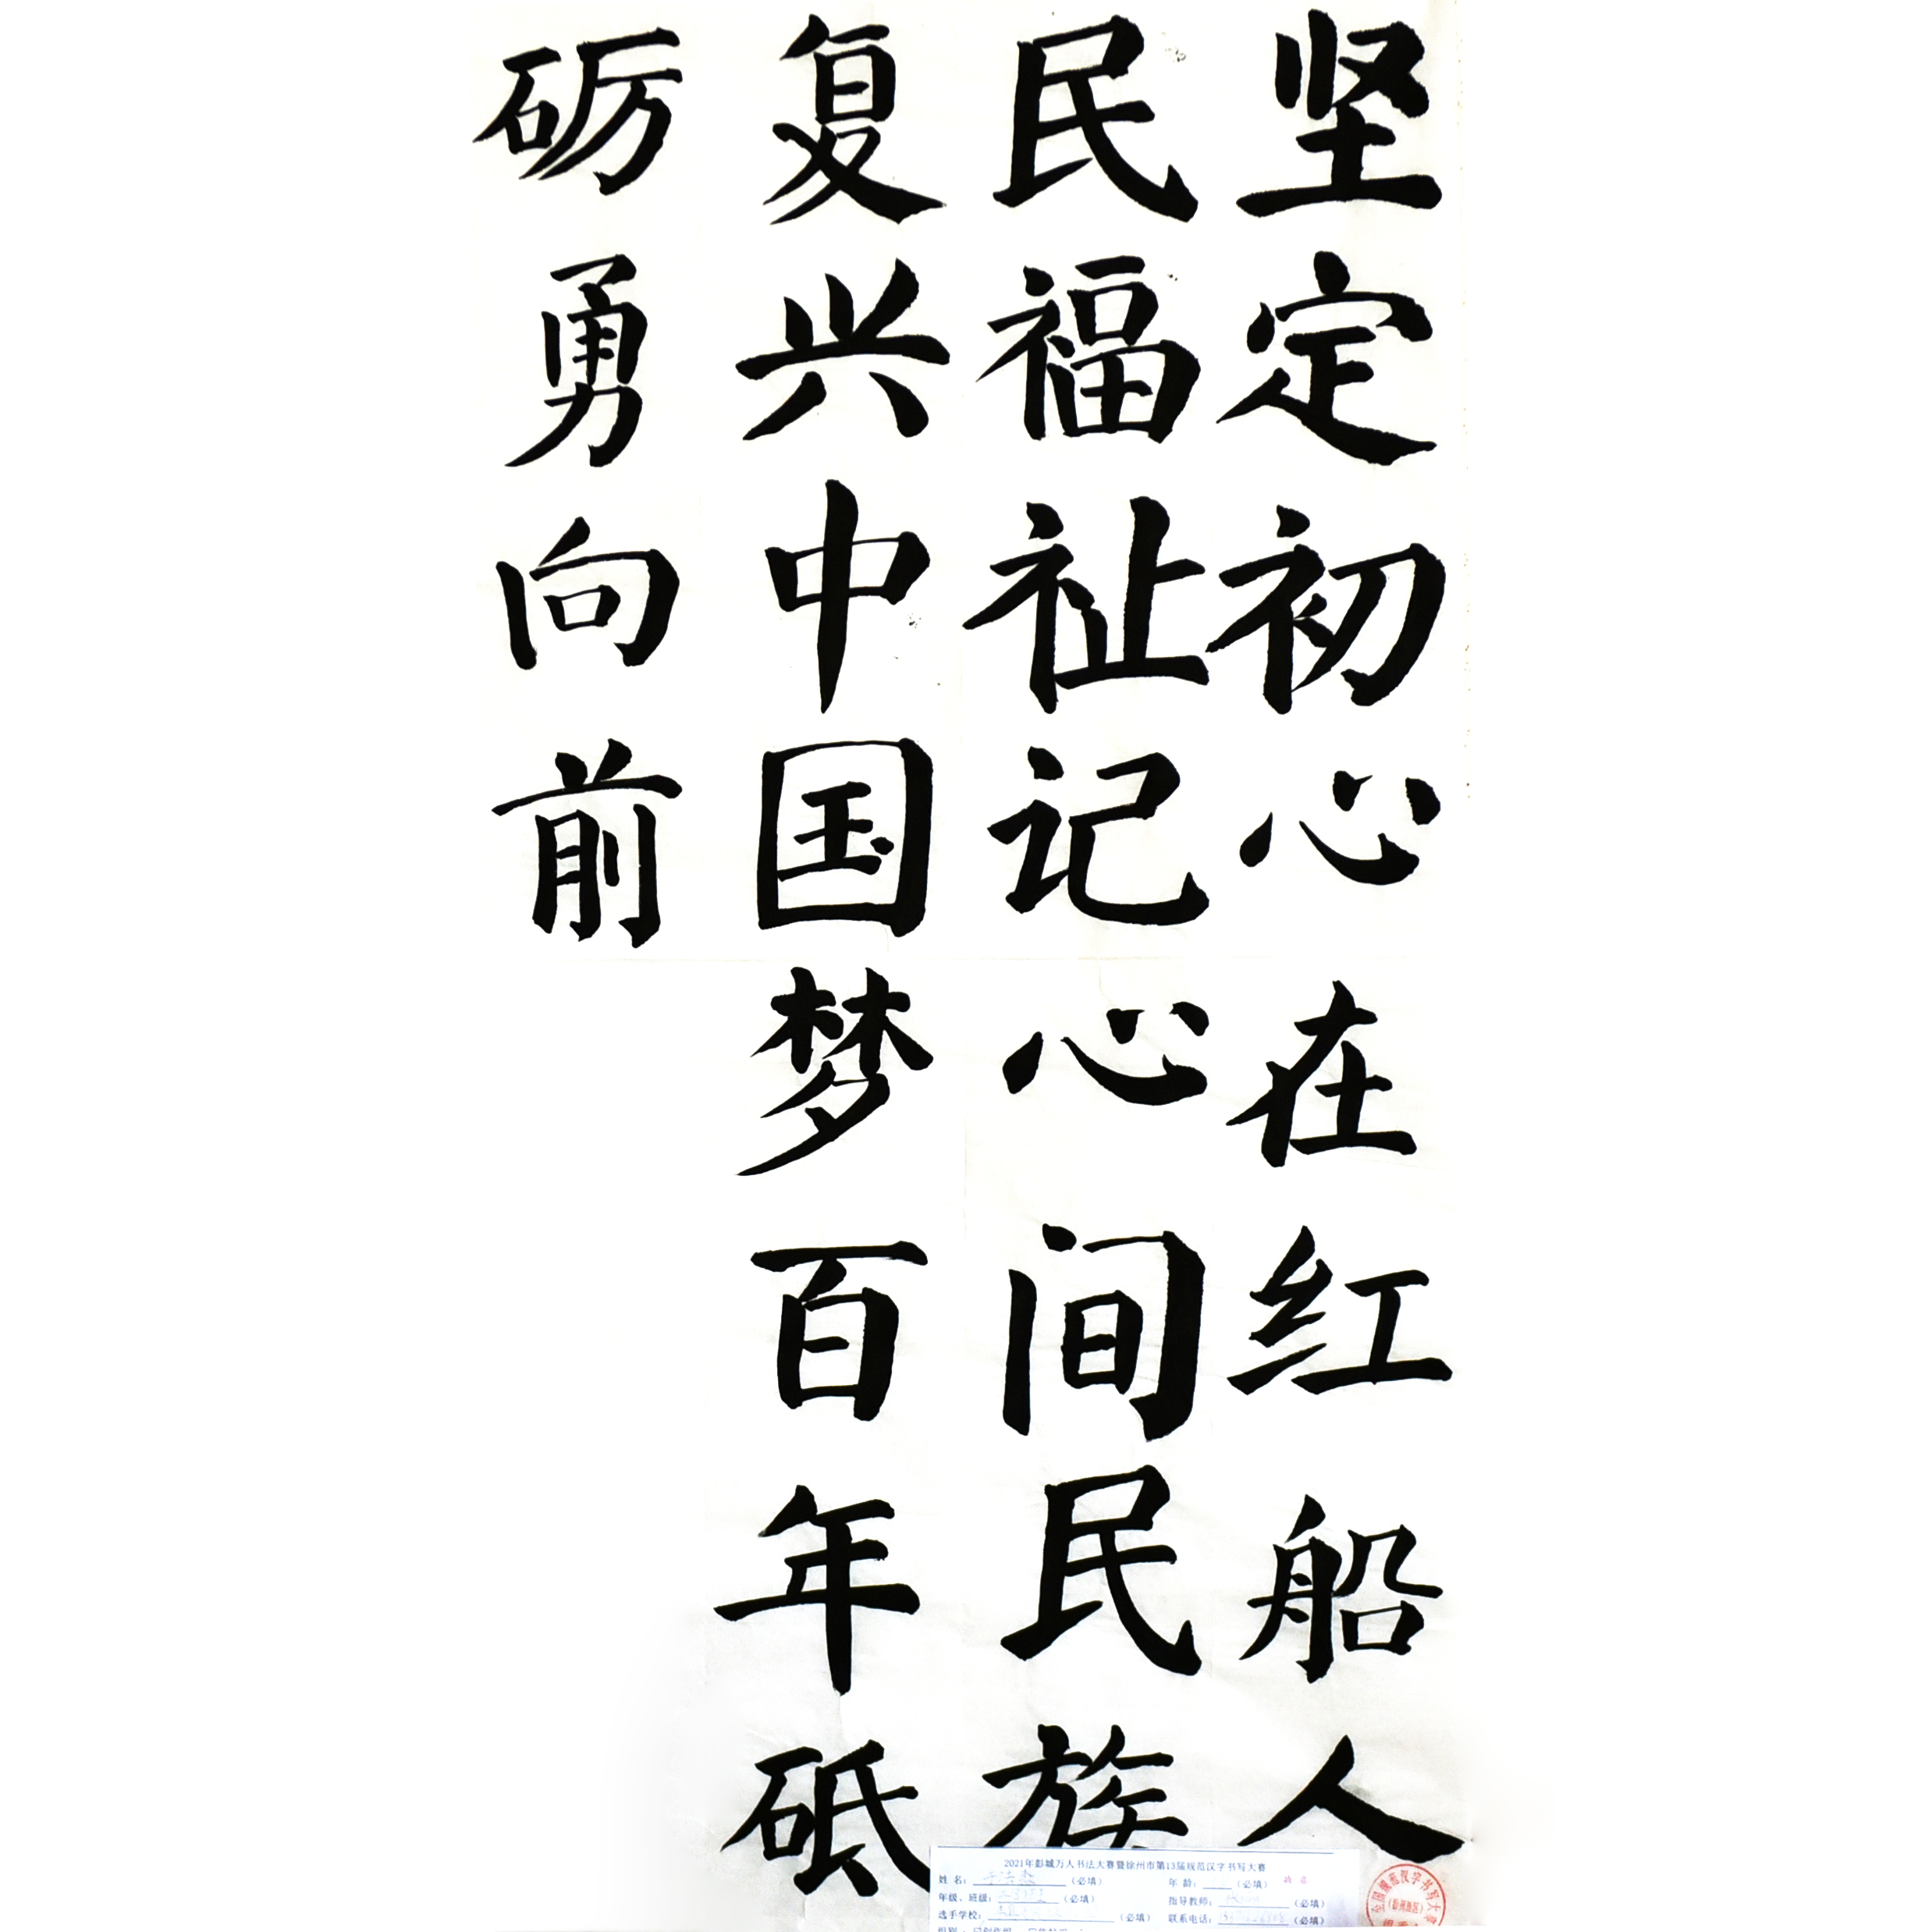 坚定初心在红船人
民福祉记心间民族
复兴中国梦百年砥
砺勇向前
2021年彭城万人书法大赛暨徐州市第13届规范汉字书写大赛
姓 名： （必填） 年 龄： （必填）
年级、班级： （必填） 指导教师： （必填）
选手学校： （必填） 联系电话： （必填）